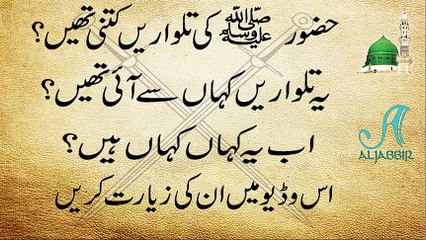 حضور ﷺ کی تلواریں کتنی تھیں؟
یہ تلواریں کہاں سے آئی تھیں؟
اب یہ کہاں کہاں ہیں؟
اس وڈیو میں ان کی زیارت کریں
ALJABBIR